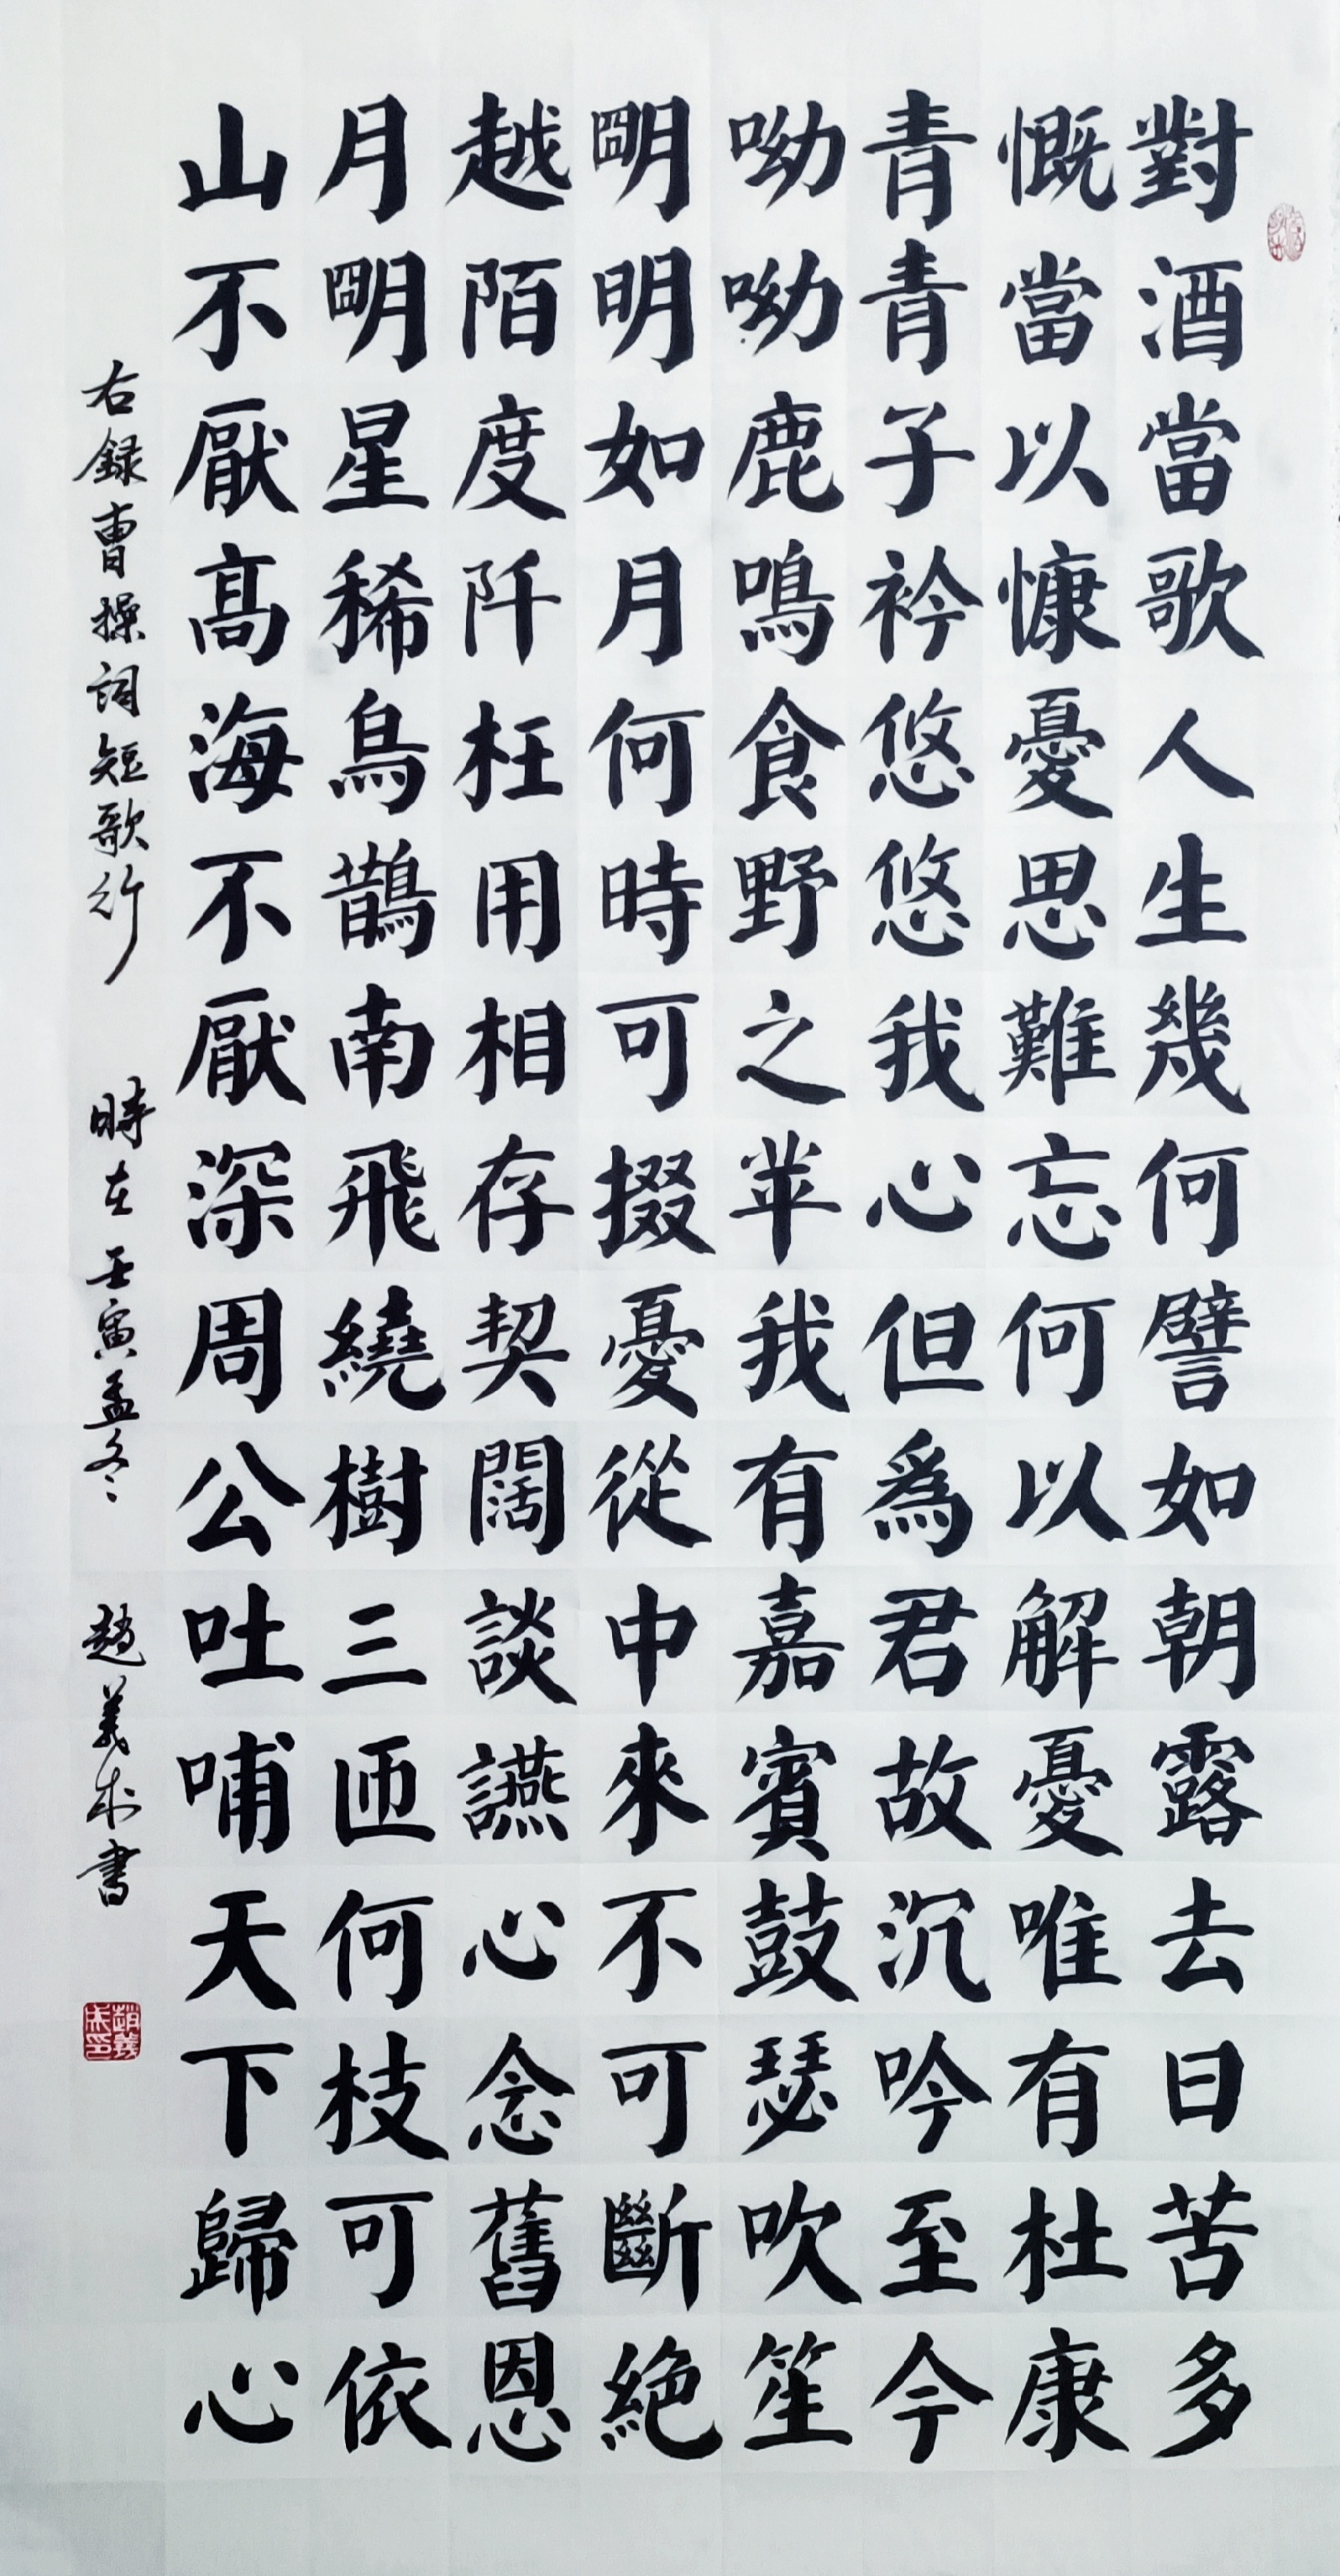 對酒當歌人生幾何譬如朝露去日苦多
慨當以慷憂思難忘何以解憂唯有杜康
青青子衿悠悠我心但爲君故沉吟至今
呦呦鹿鳴食野之苹我有嘉賓鼓瑟吹笙
朙明如月何時可掇憂從中來不可斷絶
越陌度阡枉用相存契闊談讌心念舊恩
月朙星稀烏鵲南飛繞樹三匝何枝可依
山不厭髙海不厭深周公吐哺天下歸心
右録曹操詞短歌行 時在壬寅孟冬 趙義書